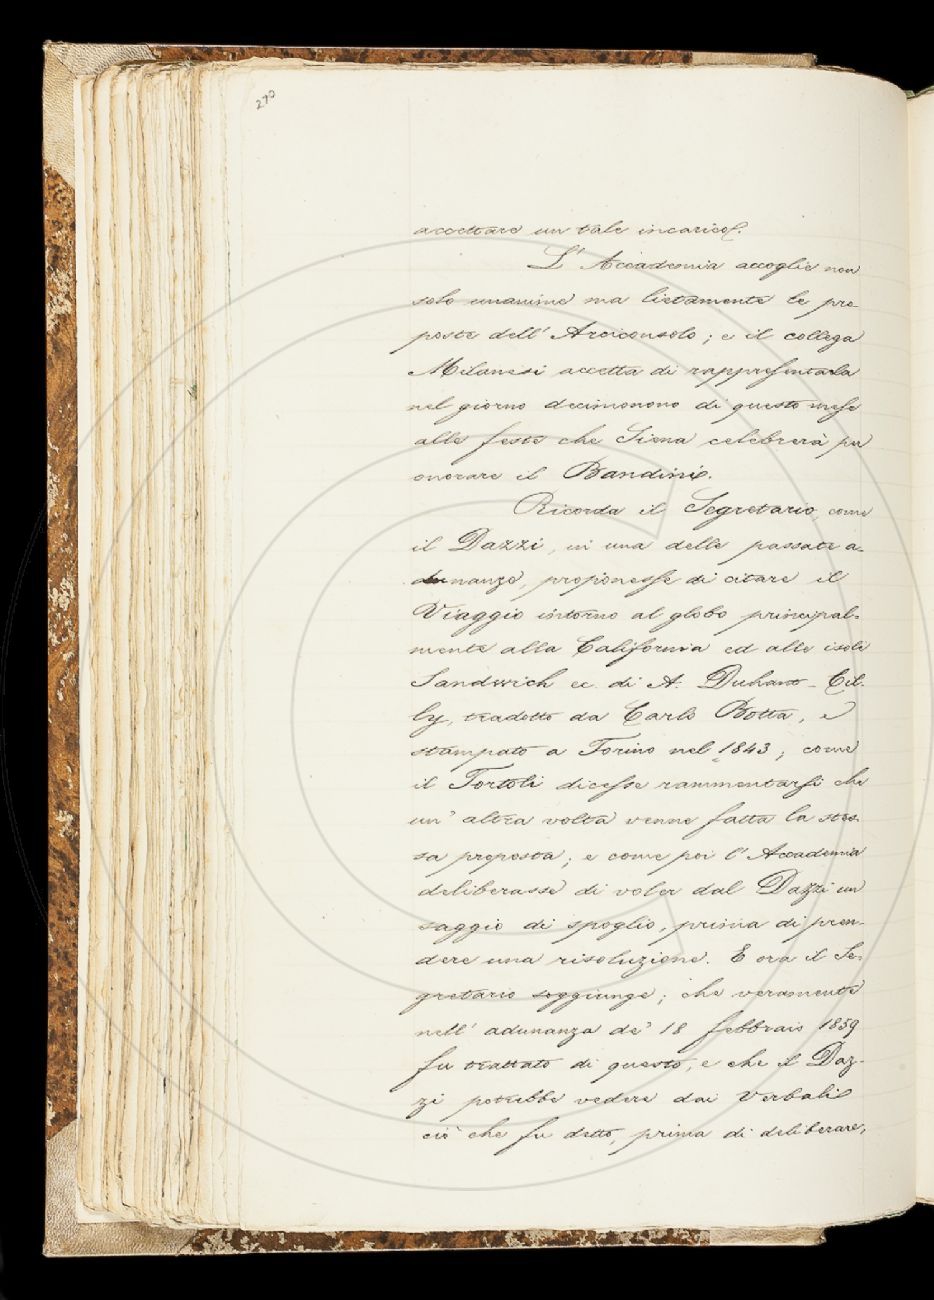 290
accettare un tale incarico.
L' Accademia accoglie non
solo unanime ma lietamente le pro-
poste dell' Arciconsolo; e il collega
Milanesi accetta di rappresentarla
nel giorno decimonono di questo mese
alle feste che Siena celebrerà per
onorare il Bandini.
Ricorda il Segretario, come
il Dazzi, in una delle passate a-
dunanze, proponesse di citare il
Viaggio intorno al globo principal-
mente alla California ed alle isole
Sandwich ec. di A. Duhaut-Cil-
ly, tradotto da Carlo Botta, e
stampato a Torino nel 1843; come
il Tortoli dicesse rammentarsi che
un' altra volta venne fatta la stes-
sa proposta; e come poi l' Accademia
deliberasse di voler dal Dazzi un
saggio di spoglio, prima di pren-
dere una risoluzione. E ora il Se-
gretario soggiunge; che veramente
nell' adunanza de' 18 febbraio 1859
fu trattato di questo, e che il Daz-
zi potrebbe vedere dai Verbali
ciò che fu detto, prima di deliberare,